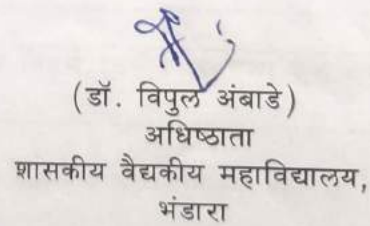 (डॉ. विपुल अंबाडे)
अधिष्ठाता
शासकीय वैद्यकीय महाविद्यालय,
भंडारा